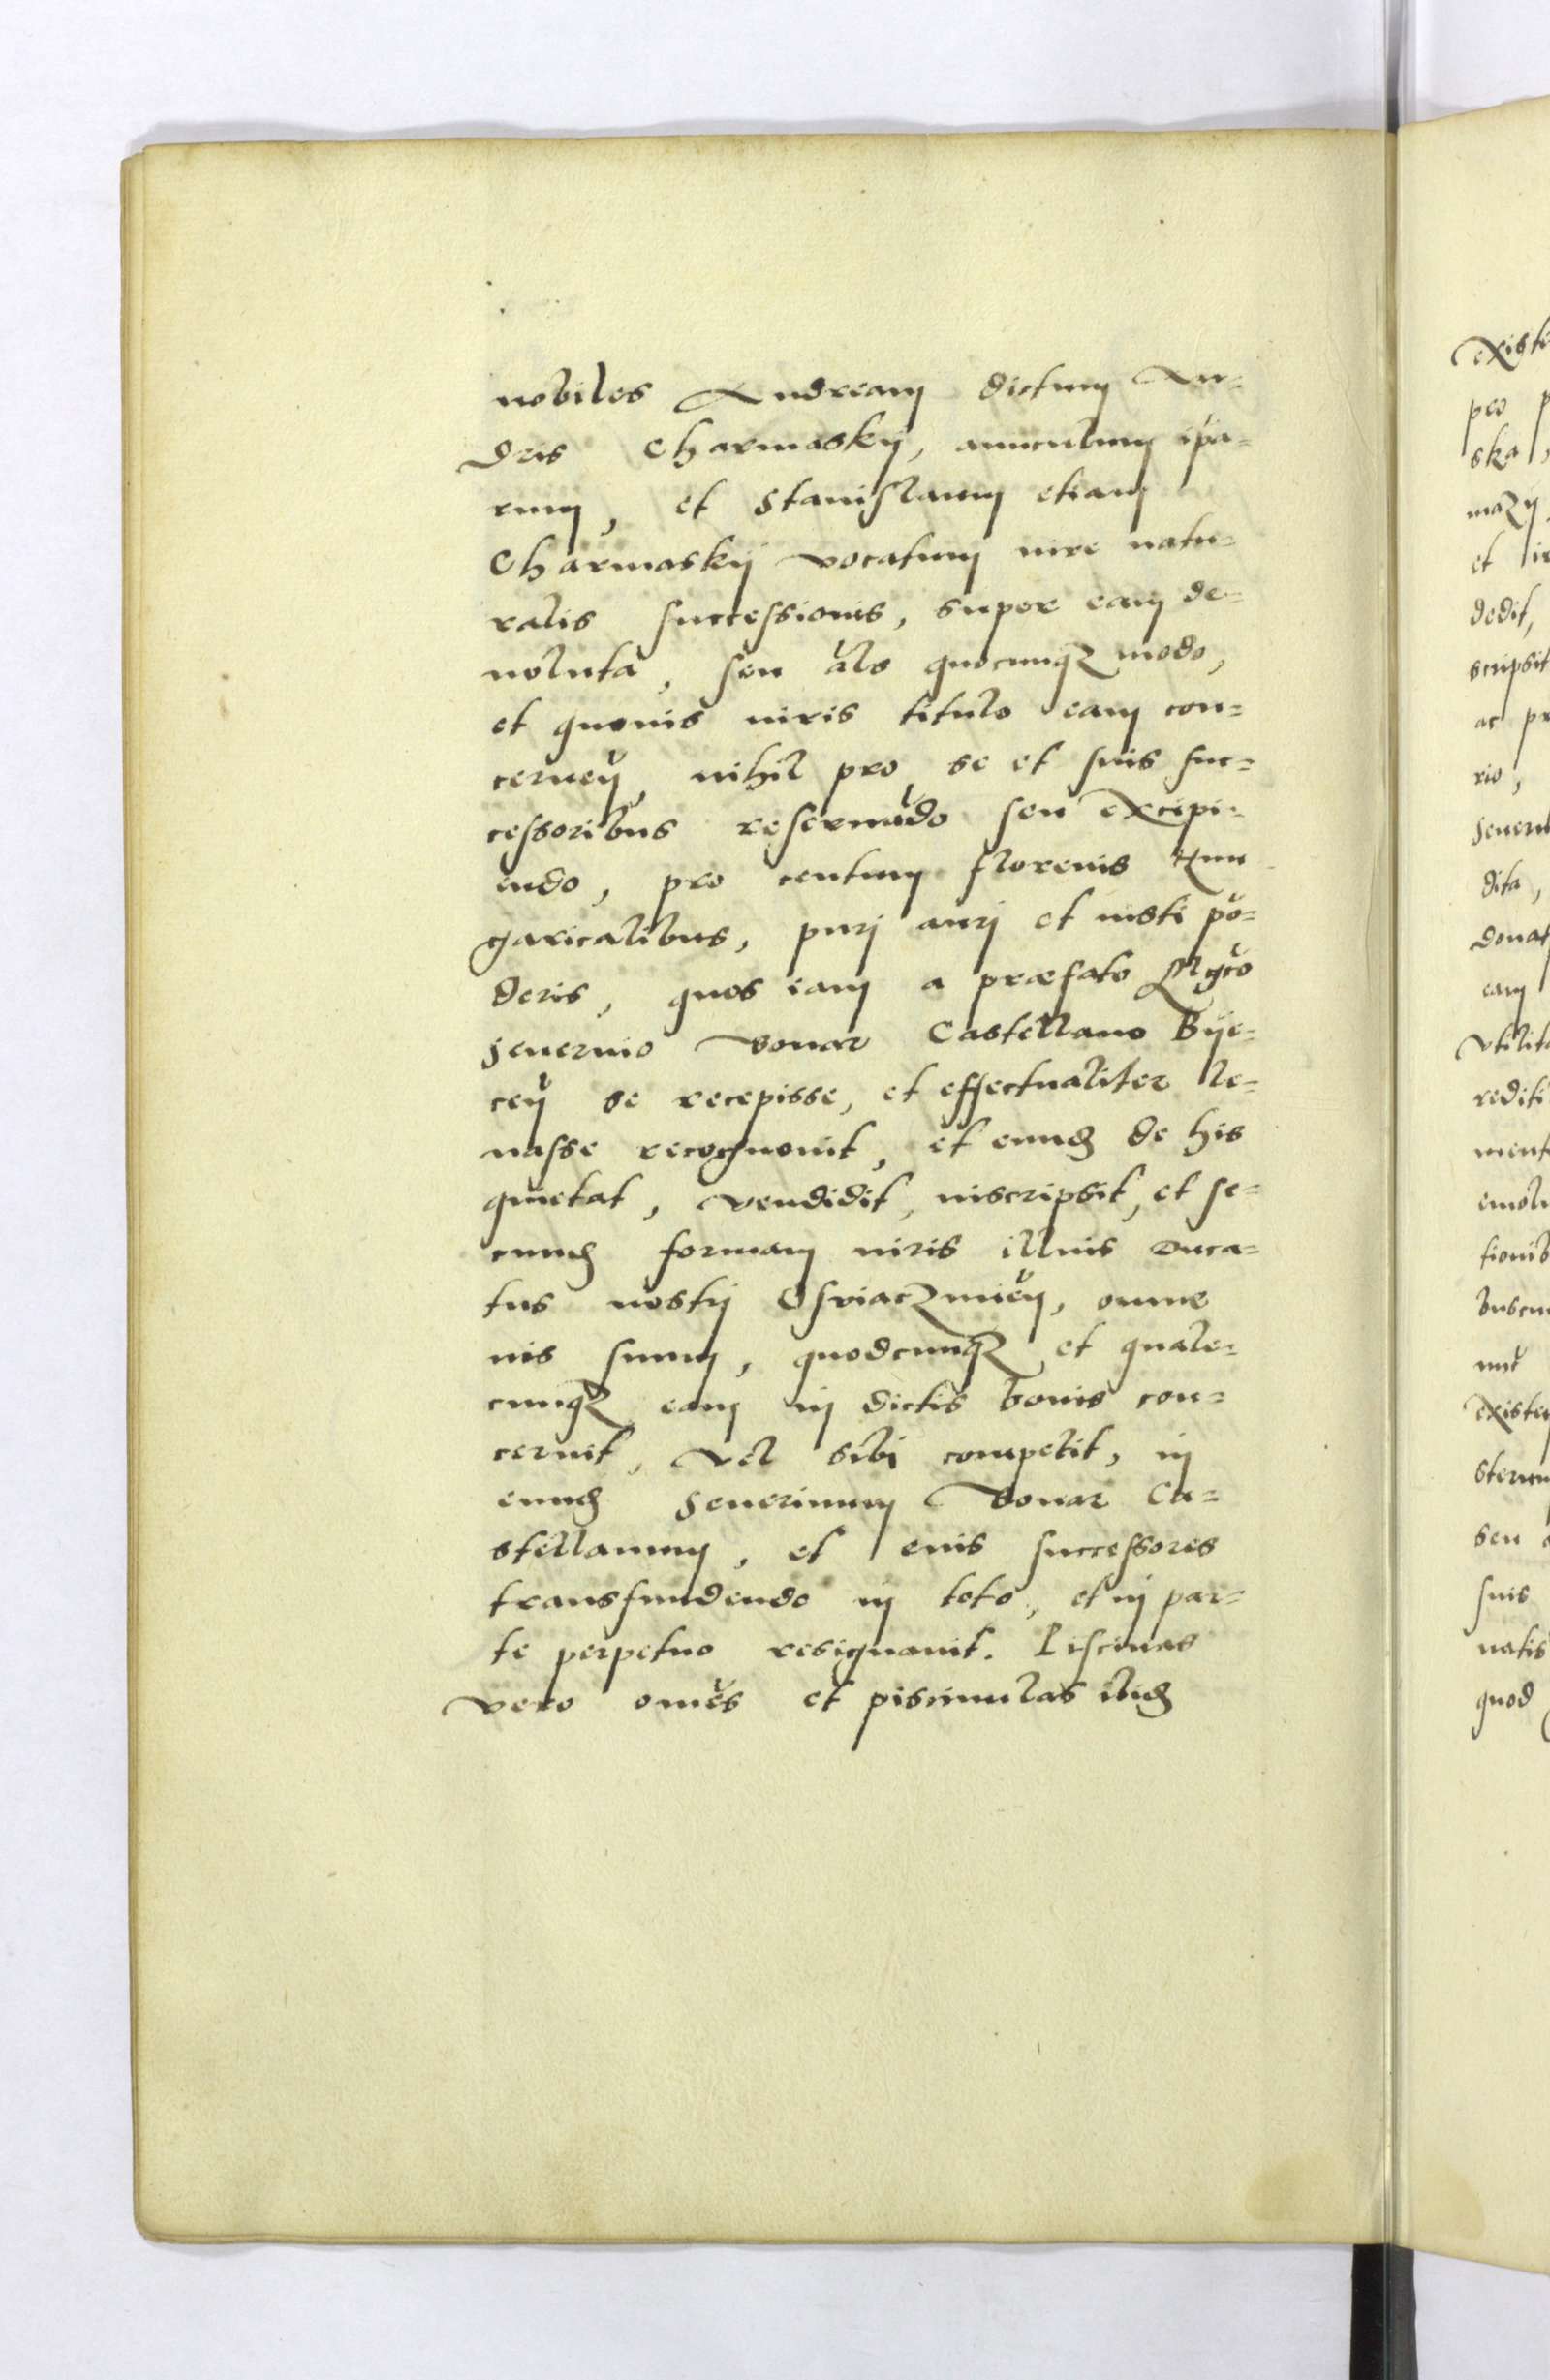 nobiles Andream dictum An=
dris Charmaskij, auunculum ipa=
rum, et Stanislaum etiam
Charmaskij vocatum iure natu=
ralis successionis, super eam de=
uoluta, seu alo quocunqz modo,
et quouis iuris titulo eam con=
cerneñ, nihil pro se et suis suc=
cessoribus reseruãdo seu excipi=
endo, pro centum florenis Hun
garicalibus, purj aurj et iusti põ=
deris, quos iam a præfato Mgco
Seuerino Bonar Castellano Bije=
ceñ se recepisse, et effectualiter le=
uasse recognouit, et eund de his
quietat, vendidit, inscripsit, et se=
cund formam iuris illius Duca=
tus nostrj Osviaczmieñ, omne
ius suum, quodcunqz et quale=
cunqz eam in dictis bonis con=
cernit, vel sibi competit, in
eund Seuerinum Bonar Ca=
stellanum, et eius successores
transfundendo in toto, et in par=
te perpetuo resignauit. Piscinas
vero omẽs et piscinulas ibid
existe
pro p
ska,
mazij
et i
dedit,
scripsit
ac pr
rio,
Seueri
dita,
donat
eam
vtilita
rediti
ment
emolu
tionib
buscu
existe
stercu
seu
suis
natis
quod